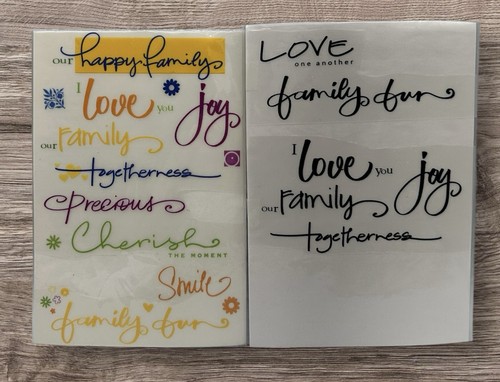 our happy family
I love you
joy
our family
togetherness
precious
Cherish
THE MOMENT
Smile
family fun
LOVE
one another
family fun
I love you
joy
our family
togetherness